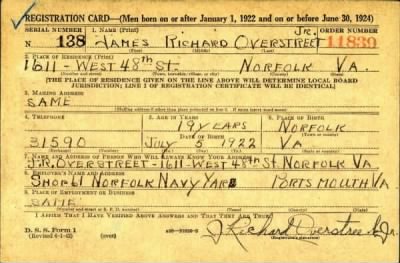 REGISTRATION CARD—(Men born on or after January 1, 1922 and on or before June 30, 1924)
SERIAL NUMBER 1. NAME (Print) ORDER NUMBER
N 138 JAMES RICHARD OVERSTREET Jr. 11830
2. PLACE OF RESIDENCE (Print)
1611-WEST 48th ST. NORFOLK VA.
[THE PLACE OF RESIDENCE GIVEN ON THE LINE ABOVE WILL DETERMINE LOCAL BOARD
JURISDICTION; LINE 2 OF REGISTRATION CERTIFICATE WILL BE IDENTICAL]
3. MAILING ADDRESS
SAME
4. TELEPHONE 5. AGE IN YEARS 6. PLACE OF BIRTH
19 YEARS NORFOLK
DATE OF BIRTH
31590 JULY 5 1922 VA
7. NAME AND ADDRESS OF PERSON WHO WILL ALWAYS KNOW YOUR ADDRESS
J.R. OVERSTREET-1611-WEST 48th ST. NORFOLK VA.
8. EMPLOYER'S NAME AND ADDRESS
SHOP 61 NORFOLK NAVY YARD PORTSMOUTH VA
9. PLACE OF EMPLOYMENT OR BUSINESS
SAME
I AFFIRM THAT I HAVE VERIFIED ABOVE ANSWERS AND THAT THEY ARE TRUE.
D. S. S. Form 1
J Richard Overstreet Jr.
(Registrant's signature)